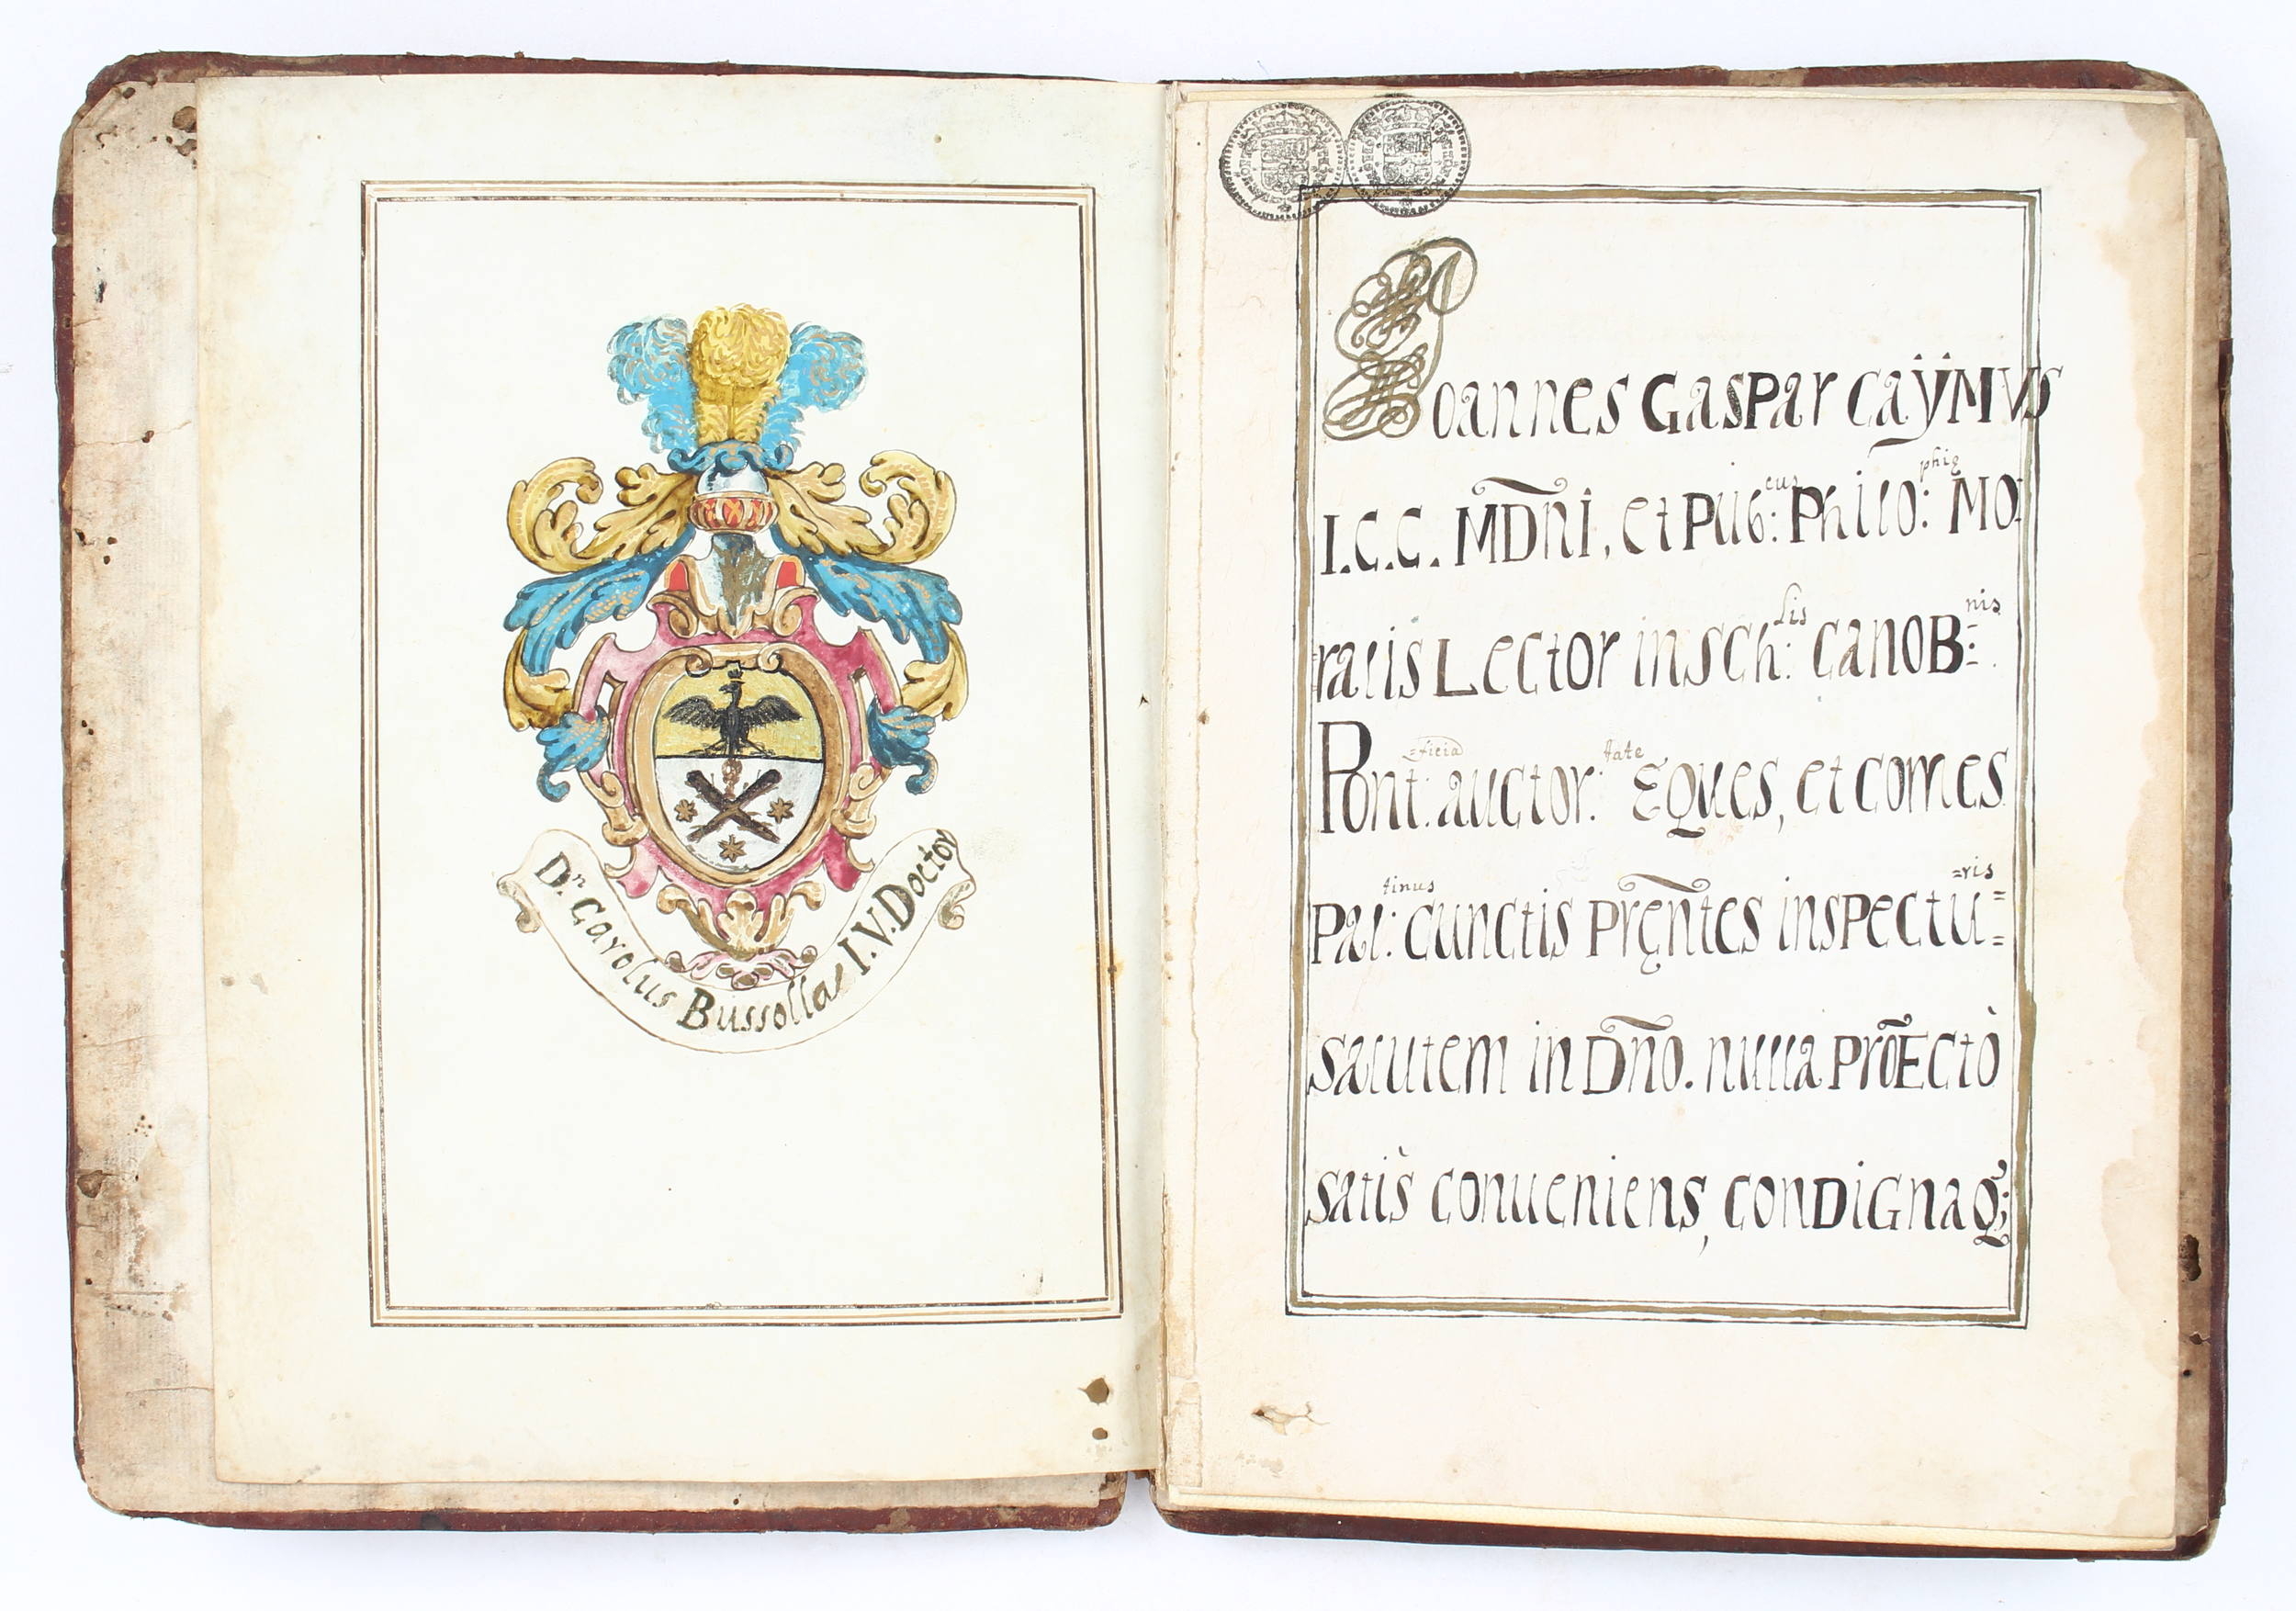 Dn Carolus Bussolla I.V. Doctor
Joannes Gaspar Caÿmus
I.C.C. MDn̄i, et Pub:cus Philo:phię Mo:
ralis Lector in Sch:lis Canob:nis
Pont:ficia auctor:tate Eques, et comes
Pal:tinus cunctis pręn̄tes inspectu=ris
salutem in Dn̄o. nulla prōEctò
satìs conueniens, condignaq;